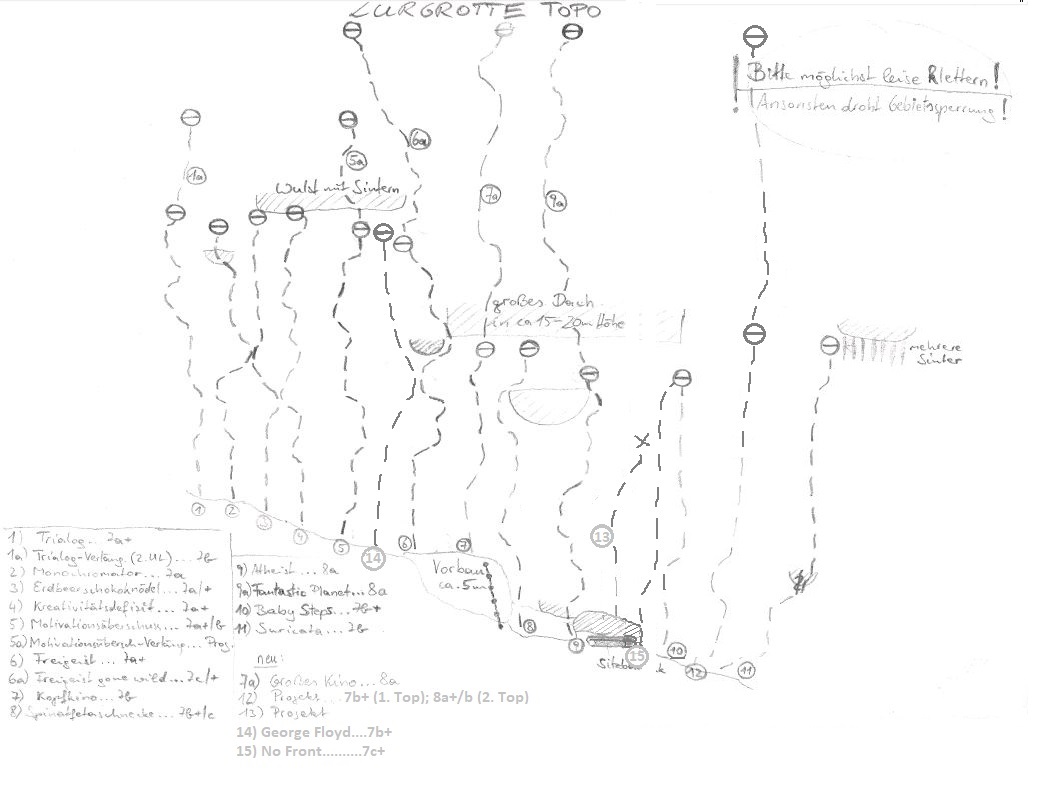 LURGROTTE TOPO
Bitte möglichst leise Klettern!
Ansonsten droht Gebietssperrung!
6a
5a
1a
Wulst mit Sintern
7a
9a
großes Dach
in ca 15-20m Höhe
mehrere
Sinter
1
2
3
4
5
14
6
7
13
Vorbau
ca. 5m
8
9
15
10
12
11
1) Trialog... 7a+
1a) Trialog-Verläng. (2.UL)... 7b
2) Monochromator... 7a
3) Erdbeerschokoknödel... 7a/+
4) Kreativitätsdefizit... 7a+
5) Motivationsüberschuss... 7a+/b
5a) Motivationsübersch-Verläng... Proj.
6) Freigeist... 7a+
6a) Freigeist gone wild... 7c/+
7) Kopfkino... 7b
8) Spinatfetaschnecke... 7b+/c
9) Atheist... 8a
9a) Fantastic Planet... 8a
10) Baby Steps... 7b+
11) Suricata... 7b
neu:
7a) Großes Kino... 8a
12) Projekt...7b+ (1. Top); 8a+/b (2. Top)
13) Projekt
14) George Floyd....7b+
15) No Front..........7c+